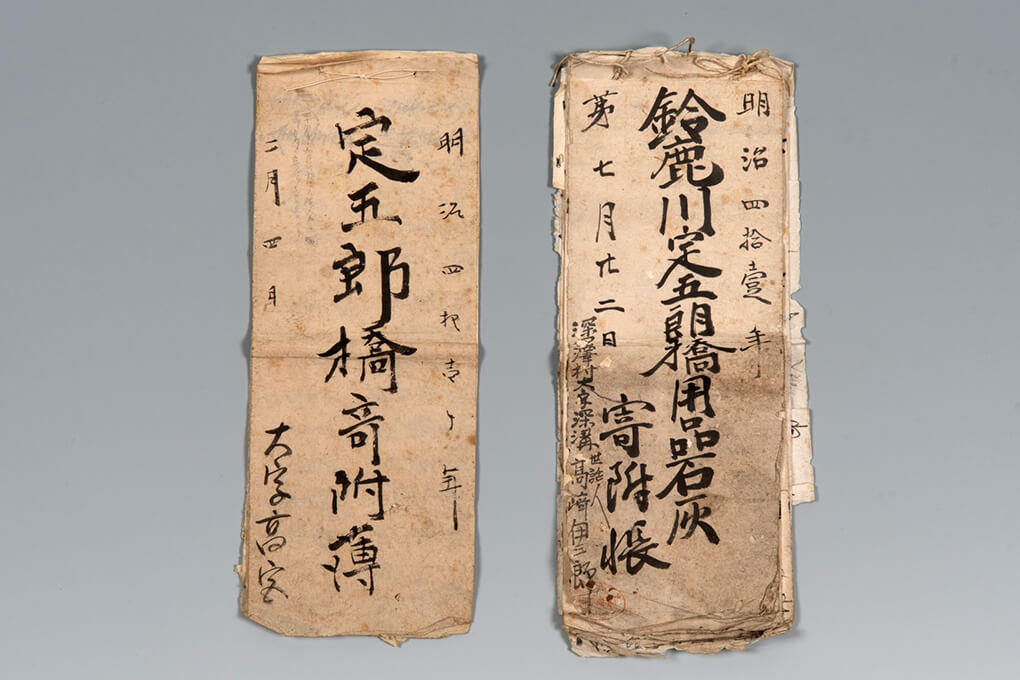 明治四拾壹年
鈴鹿川定五郎橋用品石灰
寄附帳
第七月廿二日
深澤村大字深溝
世話人
髙﨑伊三郎
明治四拾壱ヶ年
定五郎橋竒附薄
二月四日
大字高宮